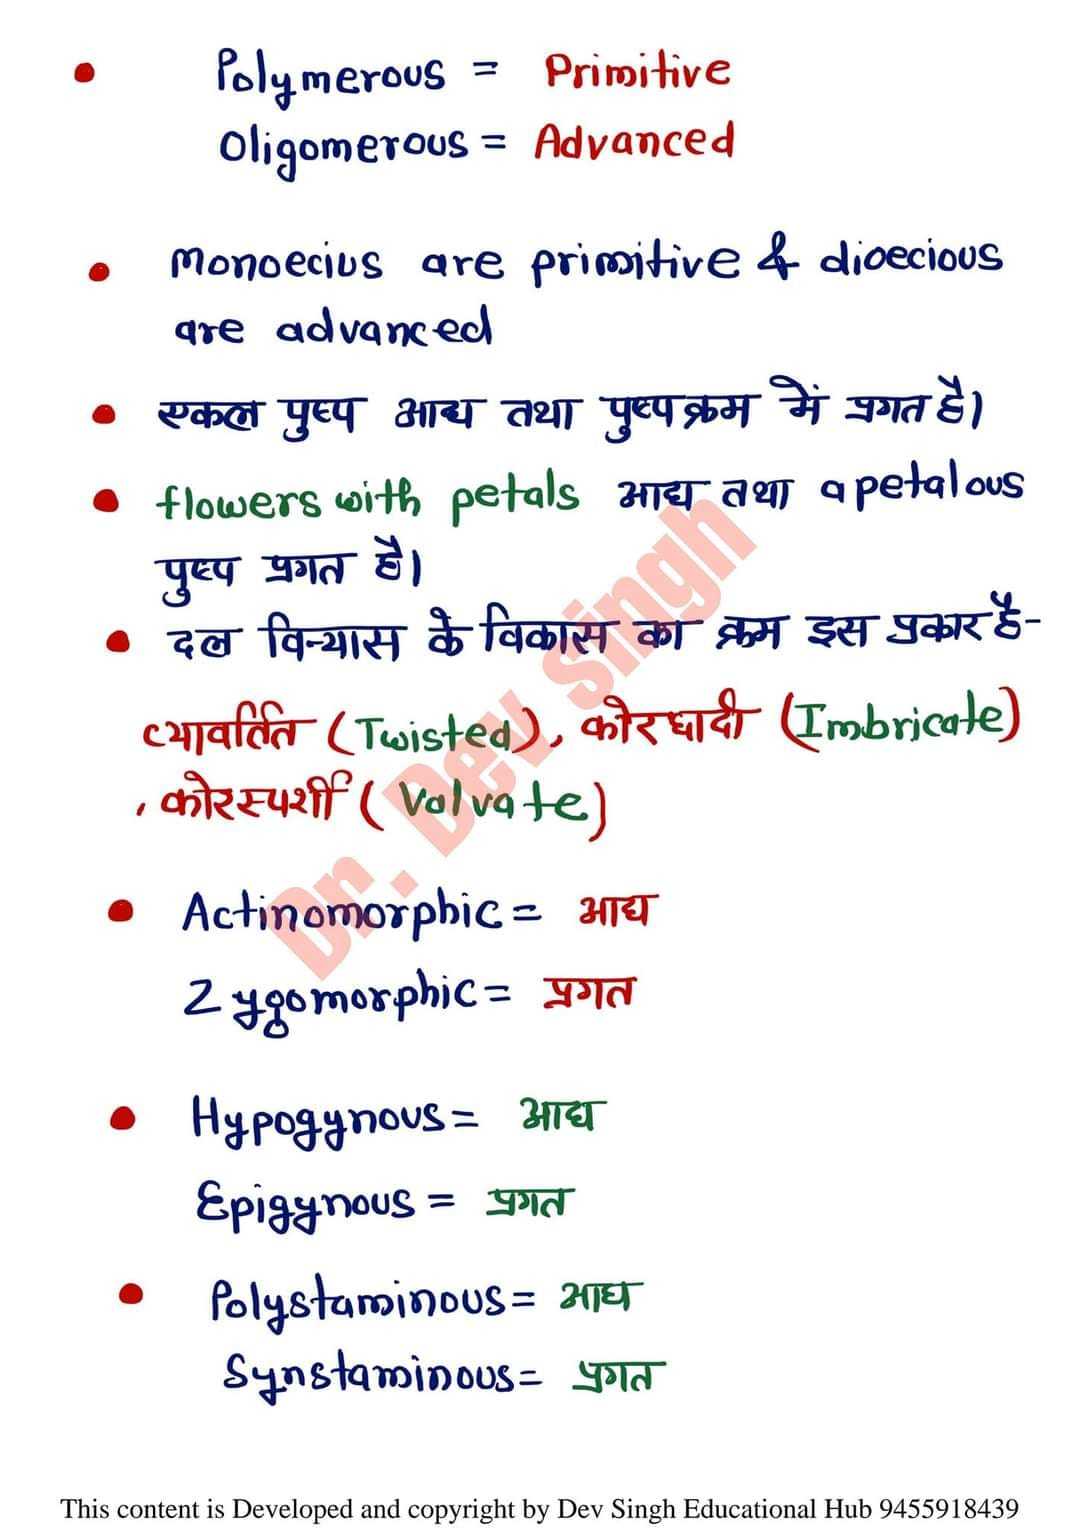 Polymerous = Primitive
Oligomerous = Advanced
Monoecius are primitive & dioecious
are advanced
एकल पुष्प आद्य तथा पुष्पक्रम में प्रगत है।
flowers with petals आद्य तथा apetalous
पुष्प प्रगत है।
दल विन्यास के विकास का क्रम इस प्रकार है-
व्यावर्तित (Twisted), कोरछादी (Imbricate)
, कोरस्पर्शी (Valvate)
Actinomorphic = आद्य
Zygomorphic = प्रगत
Hypogynous = आद्य
Epigynous = प्रगत
Polystaminous = आद्य
Synstaminous = प्रगत
Dr. Dev singh
This content is Developed and copyright by Dev Singh Educational Hub 9455918439